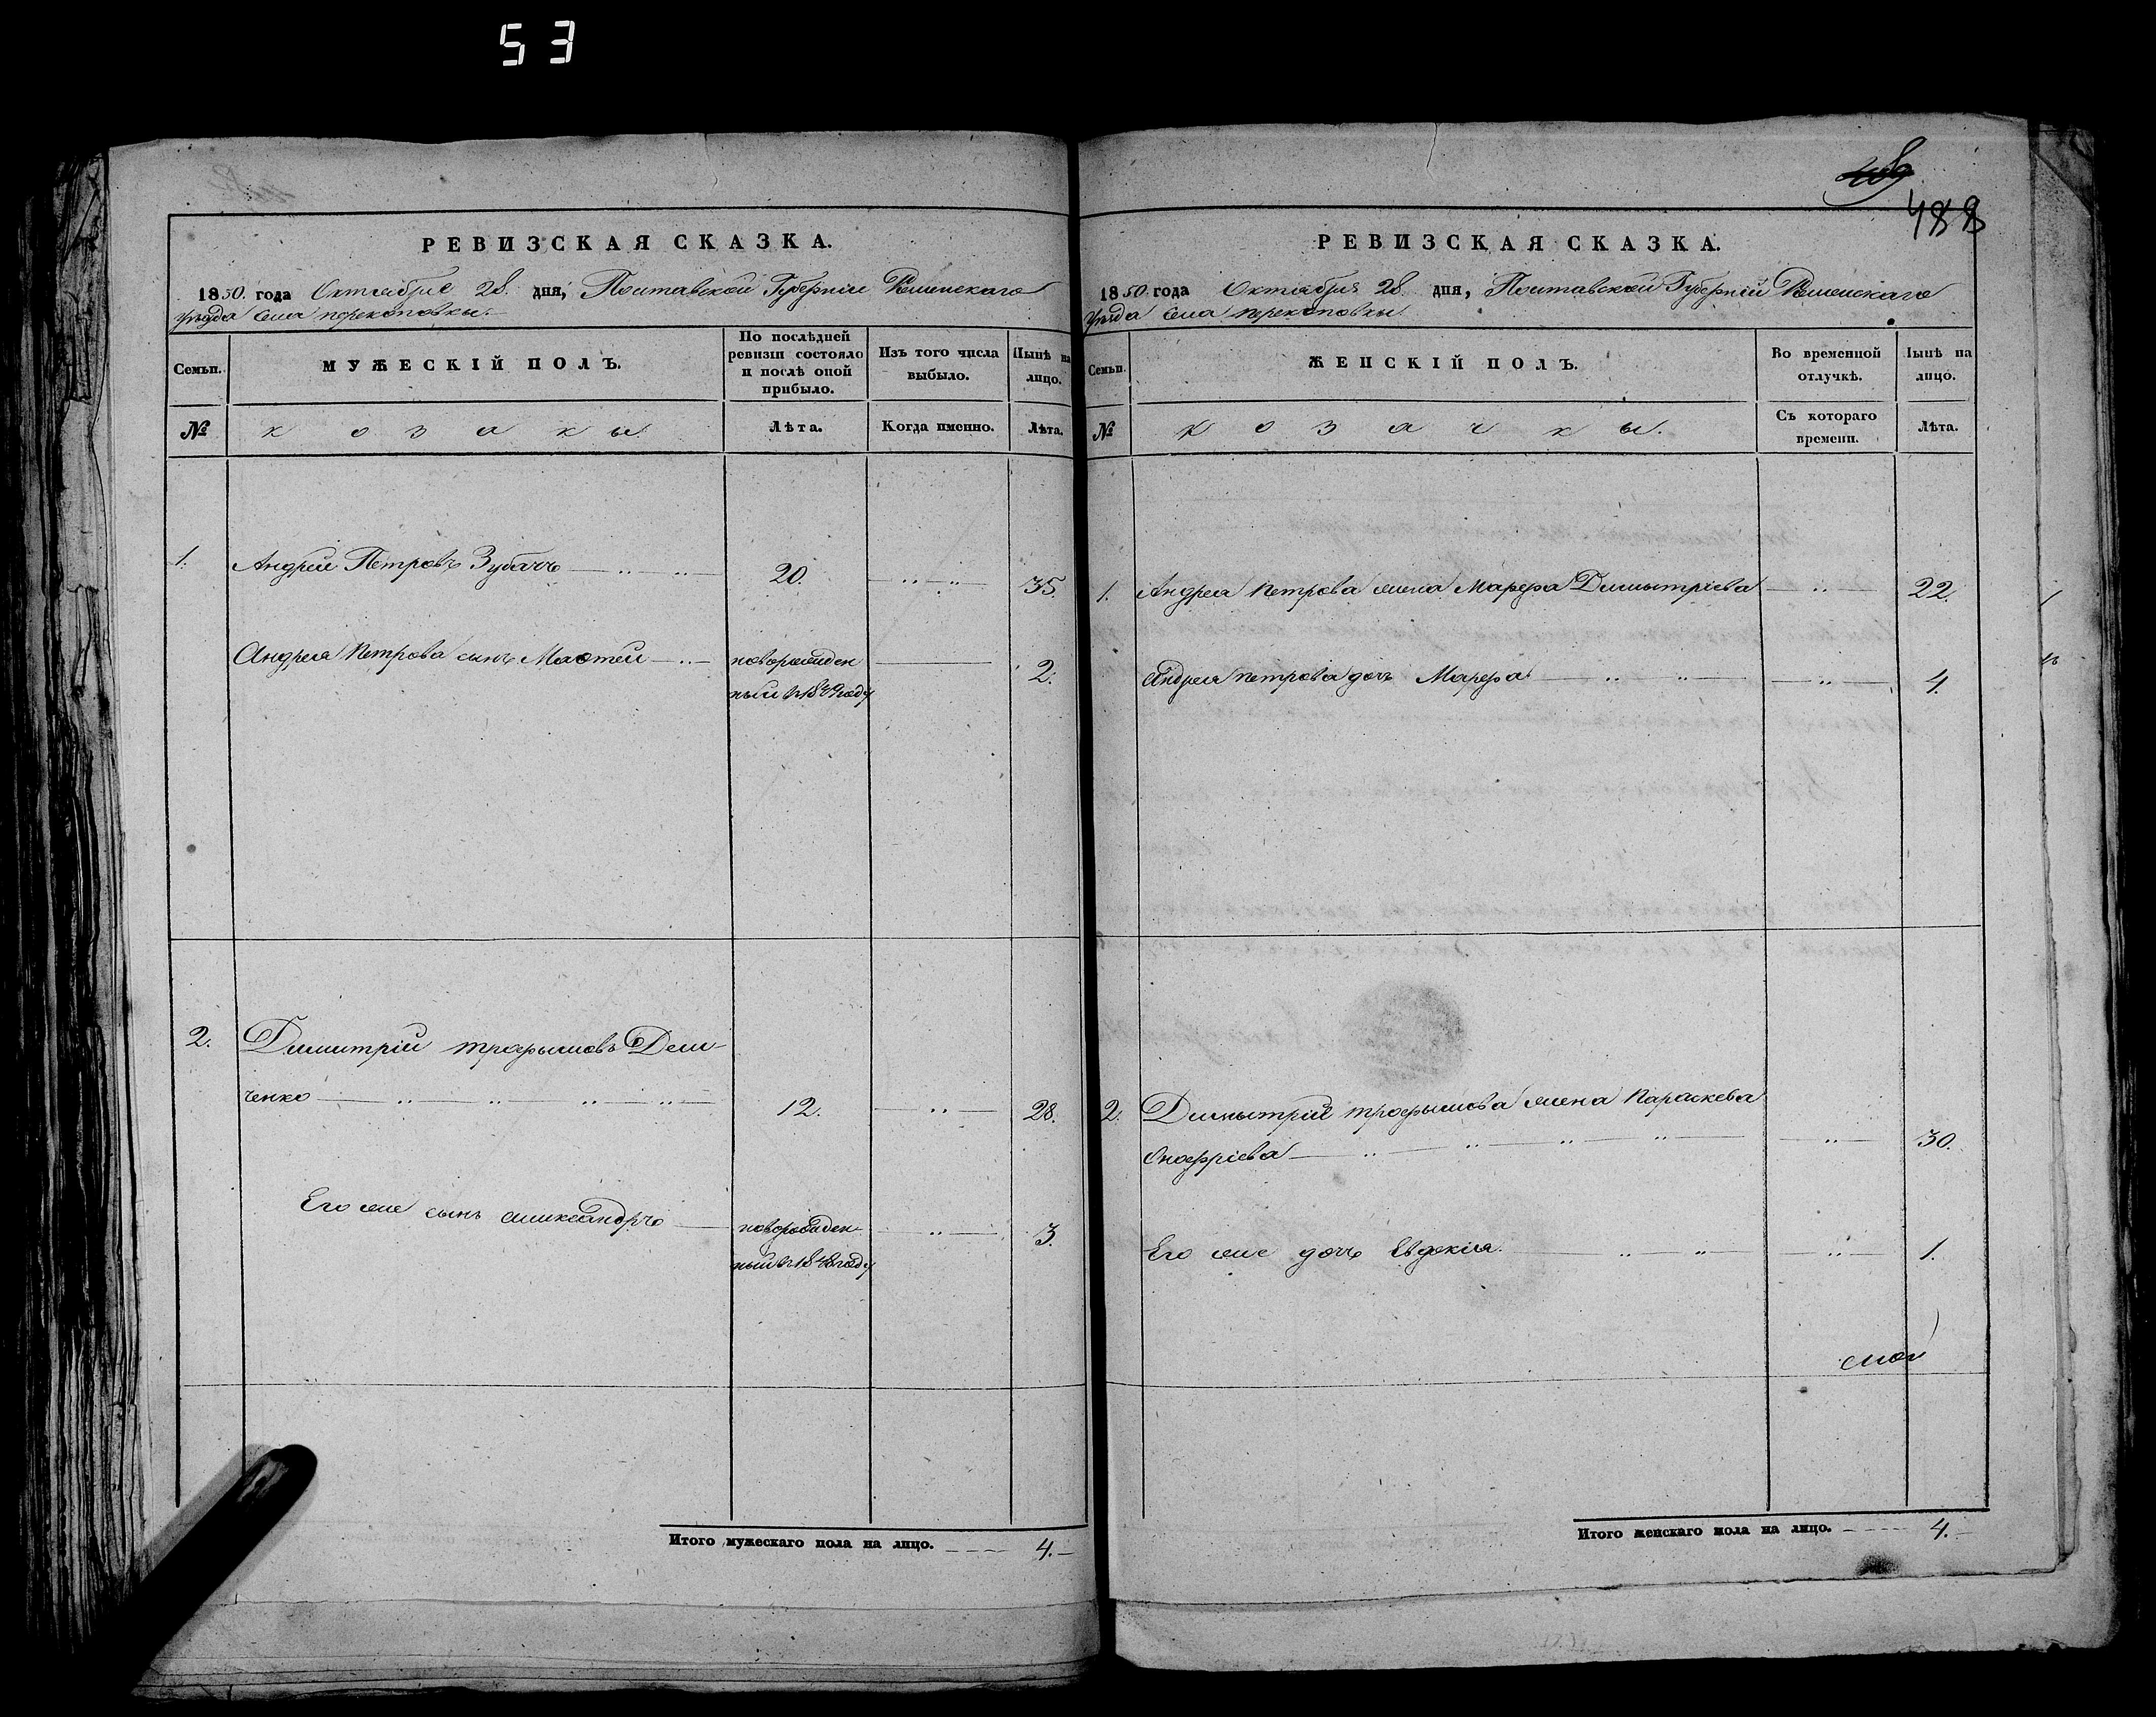 53
РЕВИЗСКАЯ СКАЗКА.
1850. года Октября 28. дня, Полтавской Губернии Роменскаго
уезда села перекоповки.
Семьи.
МУЖЕСКІЙ ПОЛЪ.
По послѣдней
ревизіи состояло
и послѣ оной
прибыло.
Изъ того числа
выбыло.
Нынѣ на
лицо.
№
козаки
Лѣта.
Когда именно.
Лѣта.
1. Андрей Петровъ Зубачъ 20. 35.
Андрея Петрова сынъ новорожден 2.
ный в 1849 году
2. Димитрій трофымовъ Дем-
ченко 12. 28.
Его же сынъ александръ новорожден 3.
ный в 1848 году
Итого мужескаго пола на лицо. 4.
488
РЕВИЗСКАЯ СКАЗКА.
1850 года Октября 28. дня, Полтавской Губерній Роменскаго
уезда села перекоповки.
Семьи.
ЖЕНСКІЙ ПОЛЪ.
Во временной
отлучкѣ.
Нынѣ на
лицо.
№
козачки.
Съ котораго
времени.
Лѣта.
1. Андрея Петрова жена Марфа Дымытріева 22.
Андрея петрова дочъ Марфа 4.
2. Дымытрія трофымова жена параскева
Онофріева 30.
Его же дочъ Евдокія. 1.
Итого женскаго пола на лицо. 4.